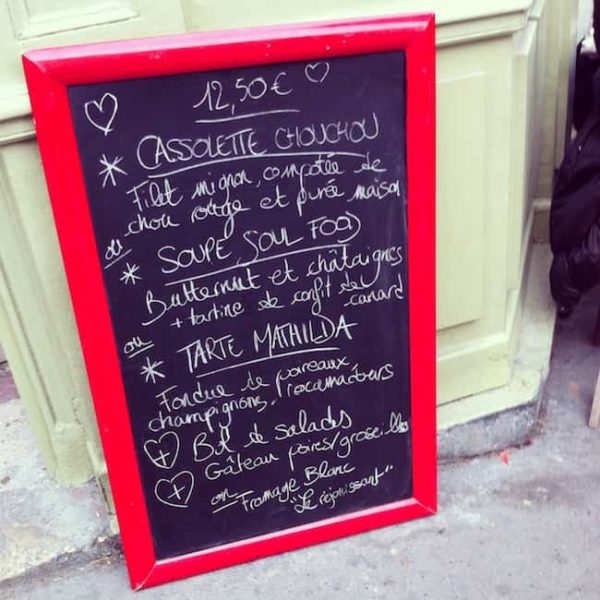 12,50€
* CASSOLETTE CHOUCHOU
Filet mignon, compotée de
chou rouge et purée maison
ou
* SOUPE SOUL FOOD
Butternut et châtaignes
+ tartine de confit de
canard
ou
* TARTE MATHILDA
Fondue de poireaux
champignons, rocamadours
+ Bol de salades
+ Gâteau poires/groseilles
ou Fromage Blanc
"Le réjouissant"